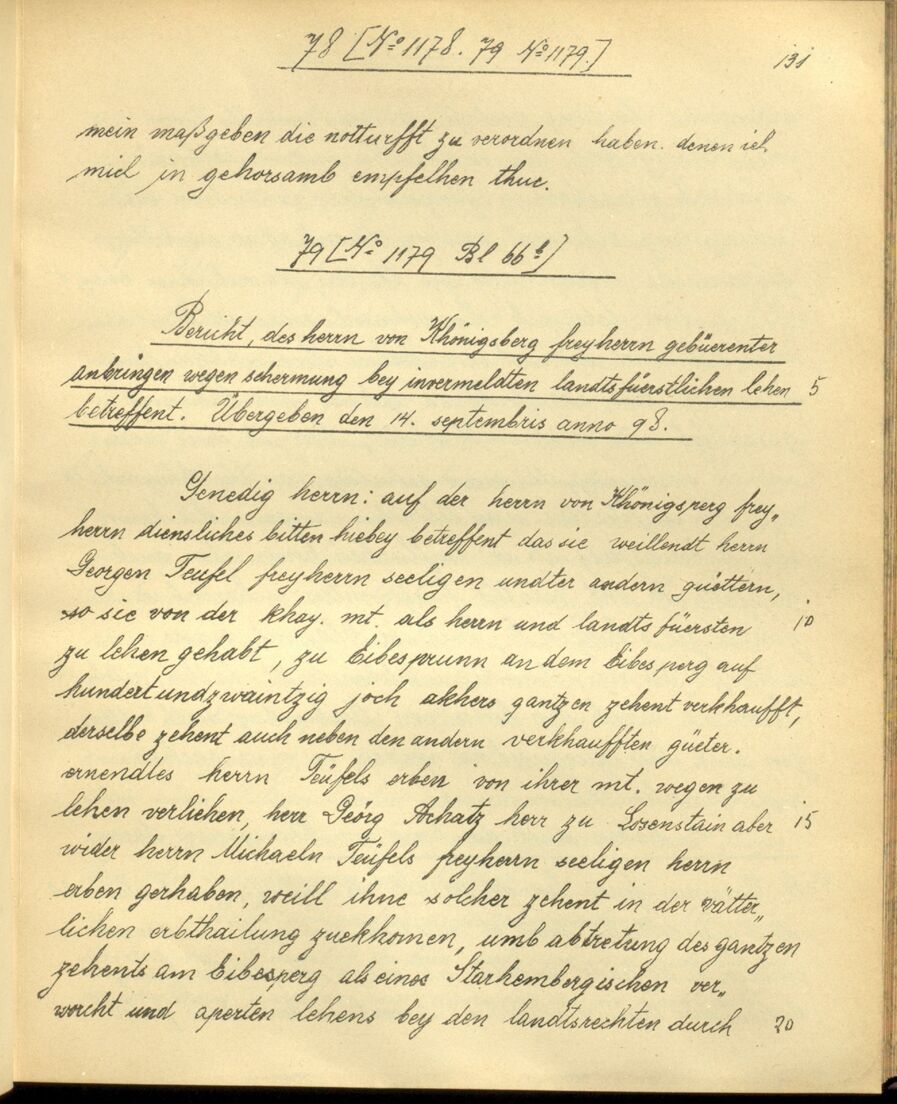 78 [No 1178. 79 No 1179.]
131
mein maßgeben die notturfft zu verordnen haben. denen ich
mich in gehorsamb empfelhen thue.
79 [No 1179 Bl 66b]
Bericht, des herrn von Khönigsberg freyherrn gebüerenter
anbringen wegen schermung bey invermeldten landtsfüerstlichen lehen 5
betreffent. Übergeben den 14. septembris anno 98.
Genedig herrn: auf der herrn von Khönigsperg frey„
herrn diensliches bitten hiebey betreffent das sie weillendt herrn
Georgen Teufel freyherrn seeligen undter andern guettern,
so sie von der khay. mt. als herrn und landtsfüersten 10
zu lehen gehabt, zu Eibesprunn an dem Eibesperg auf
hundertundzwaintzig joch akhers gantzen zehent verkhaufft,
derselbe zehent auch neben den andern verkhaufften güeter.
ernendtes herrn Teüfels erben von ihrer mt. wegen zu
lehen verlichen, herr Geörg Achatz herr zu Losenstain aber 15
wider herrn Michaeln Teüfels freyherrn seeligen herrn
erben gerhaben, weill ihne solcher zehent in der vätter„
lichen erbthailung zuekhomen, umb abtretung des gantzen
zehents am Eibesperg als eines Starhembergischen ver„
worcht und aperten lehens bey den landtsrechten durch 20